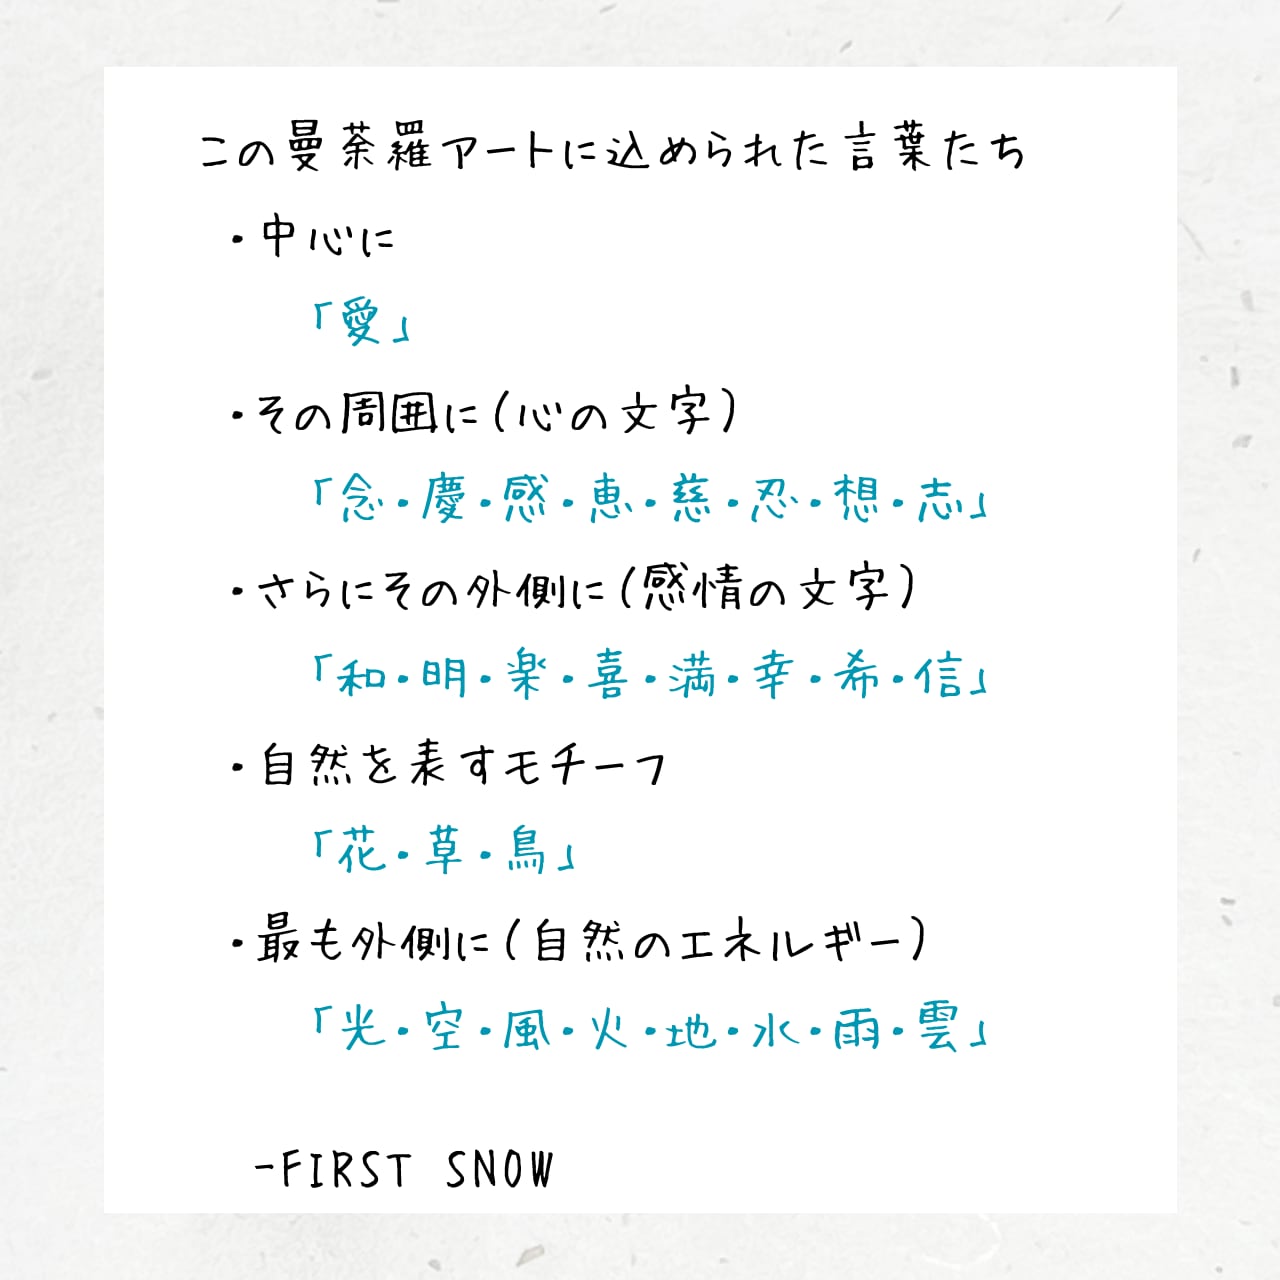 この曼荼羅アートに込められた言葉たち
・中心に
「愛」
・その周囲に(心の文字)
「念・慶・感・恵・慈・忍・想・志」
・さらにその外側に(感情の文字)
「和・明・楽・喜・満・幸・希・信」
・自然を表すモチーフ
「花・草・鳥」
・最も外側に(自然のエネルギー)
「光・空・風・火・地・水・雨・雲」
-FIRST SNOW